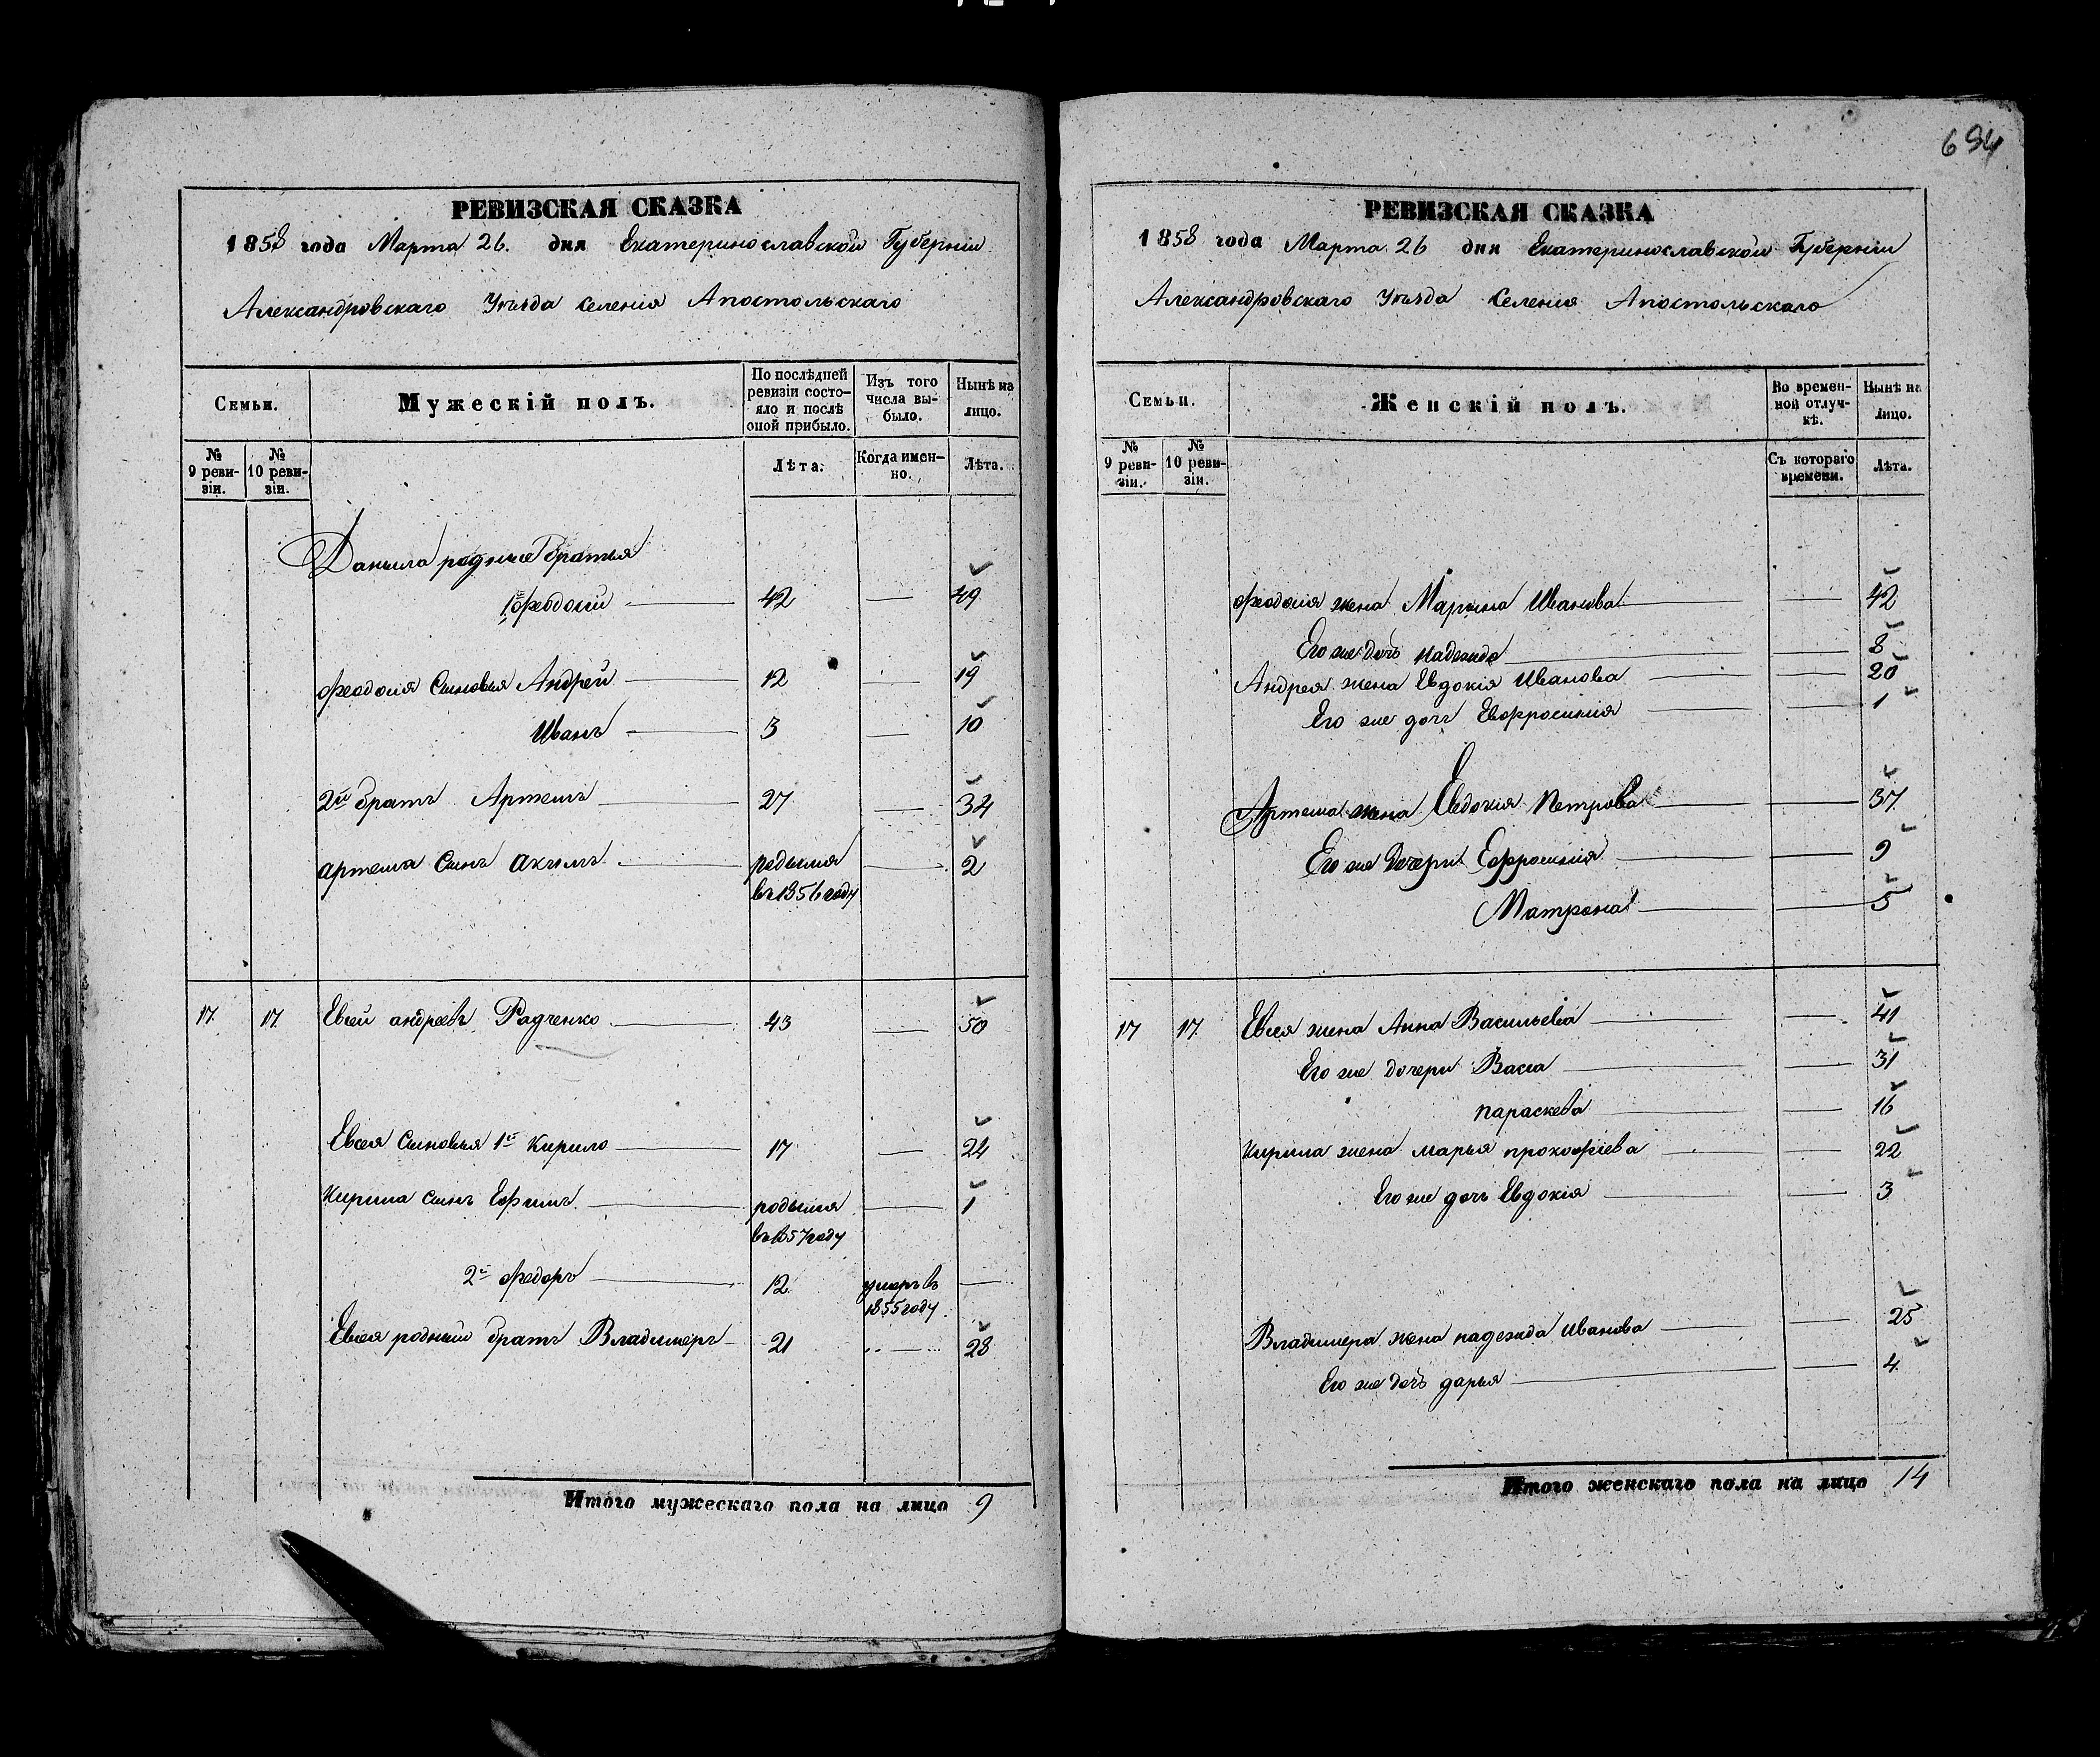 694
РЕВИЗСКАЯ СКАЗКА
1858 года Марта 26. дня Екатеринославской Губерніи
Александровскаго Уѣзда селенія Апостольскаго
Семьи.
Мужескій полъ.
По послѣдней ревизіи состояло и послѣ оной прибыло.
Изъ того числа выбыло.
Нынѣ на лицо.
№ 9 ревизіи.
№ 10 ревизіи.
Лѣта.
Когда именно.
Лѣта.
Данила родные братья
1й Феодосій 42 — 49
Феодосія сыновья Андрей 12 — 19
Иванъ 3 — 10
2й братъ Артемъ 27 — 34
Артема сынъ Акимъ родился — 2
въ 1856 году
17. 17. Евсей Андреевъ Радченко 43 — 50
Евсея сыновья 1й Кирило 17 — 24
Кирила сынъ Ефимъ родился — 1
въ 1857 году
2й Федоръ 12 умеръ въ —
1855 году
Евсея родный братъ Владимеръ 21 — 28
Итого мужескаго пола на лицо 9
РЕВИЗСКАЯ СКАЗКА
1858 года Марта 26 дня Екатеринославской Губерніи
Александровскаго Уѣзда Селенія Апостольскаго
Семьи.
Женскій полъ.
Во временной отлучкѣ.
Нынѣ на лицо.
№ 9 ревизіи.
№ 10 ревизіи.
Съ котораго времени.
Лѣта.
Феодосія жена Марина Иванова — 42
Его же дочь Надежда — 8
Андрея жена Евдокія Иванова — 20
Его же дочь Евфросинія — 1
Артема жена Евдокія Петрова — 37
Его же дочери Ефросинія — 9
Матрона — 5
17 17. Евсея жена Анна Васильева — 41
Его же дочери Васса — 31
Параскева — 16
Кирила жена Марья Прокофіева — 22
Его же дочь Евдокія — 3
Владимера жена Надежда Иванова — 25
Его же дочь Дарья — 4
Итого женскаго пола на лицо 14